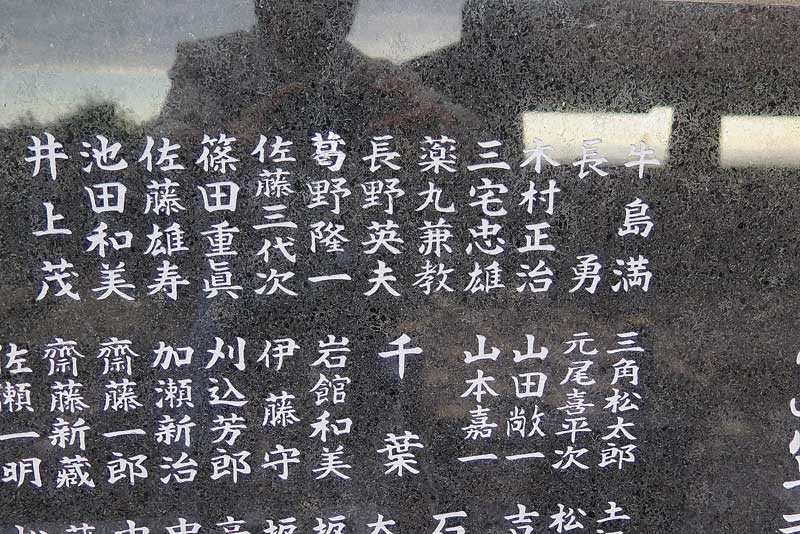 牛島満
長勇
木村正治
三宅忠雄
薬丸兼教
長野英夫
葛野隆一
佐藤三代次
篠田重眞
佐藤雄寿
池田和美
井上茂
三角松太郎
元尾喜平次
山田敞一
山本嘉一
千葉
岩館和美
伊藤守
刈込芳郎
加瀬新治
齋藤一郎
齋藤新蔵
佐瀬一明